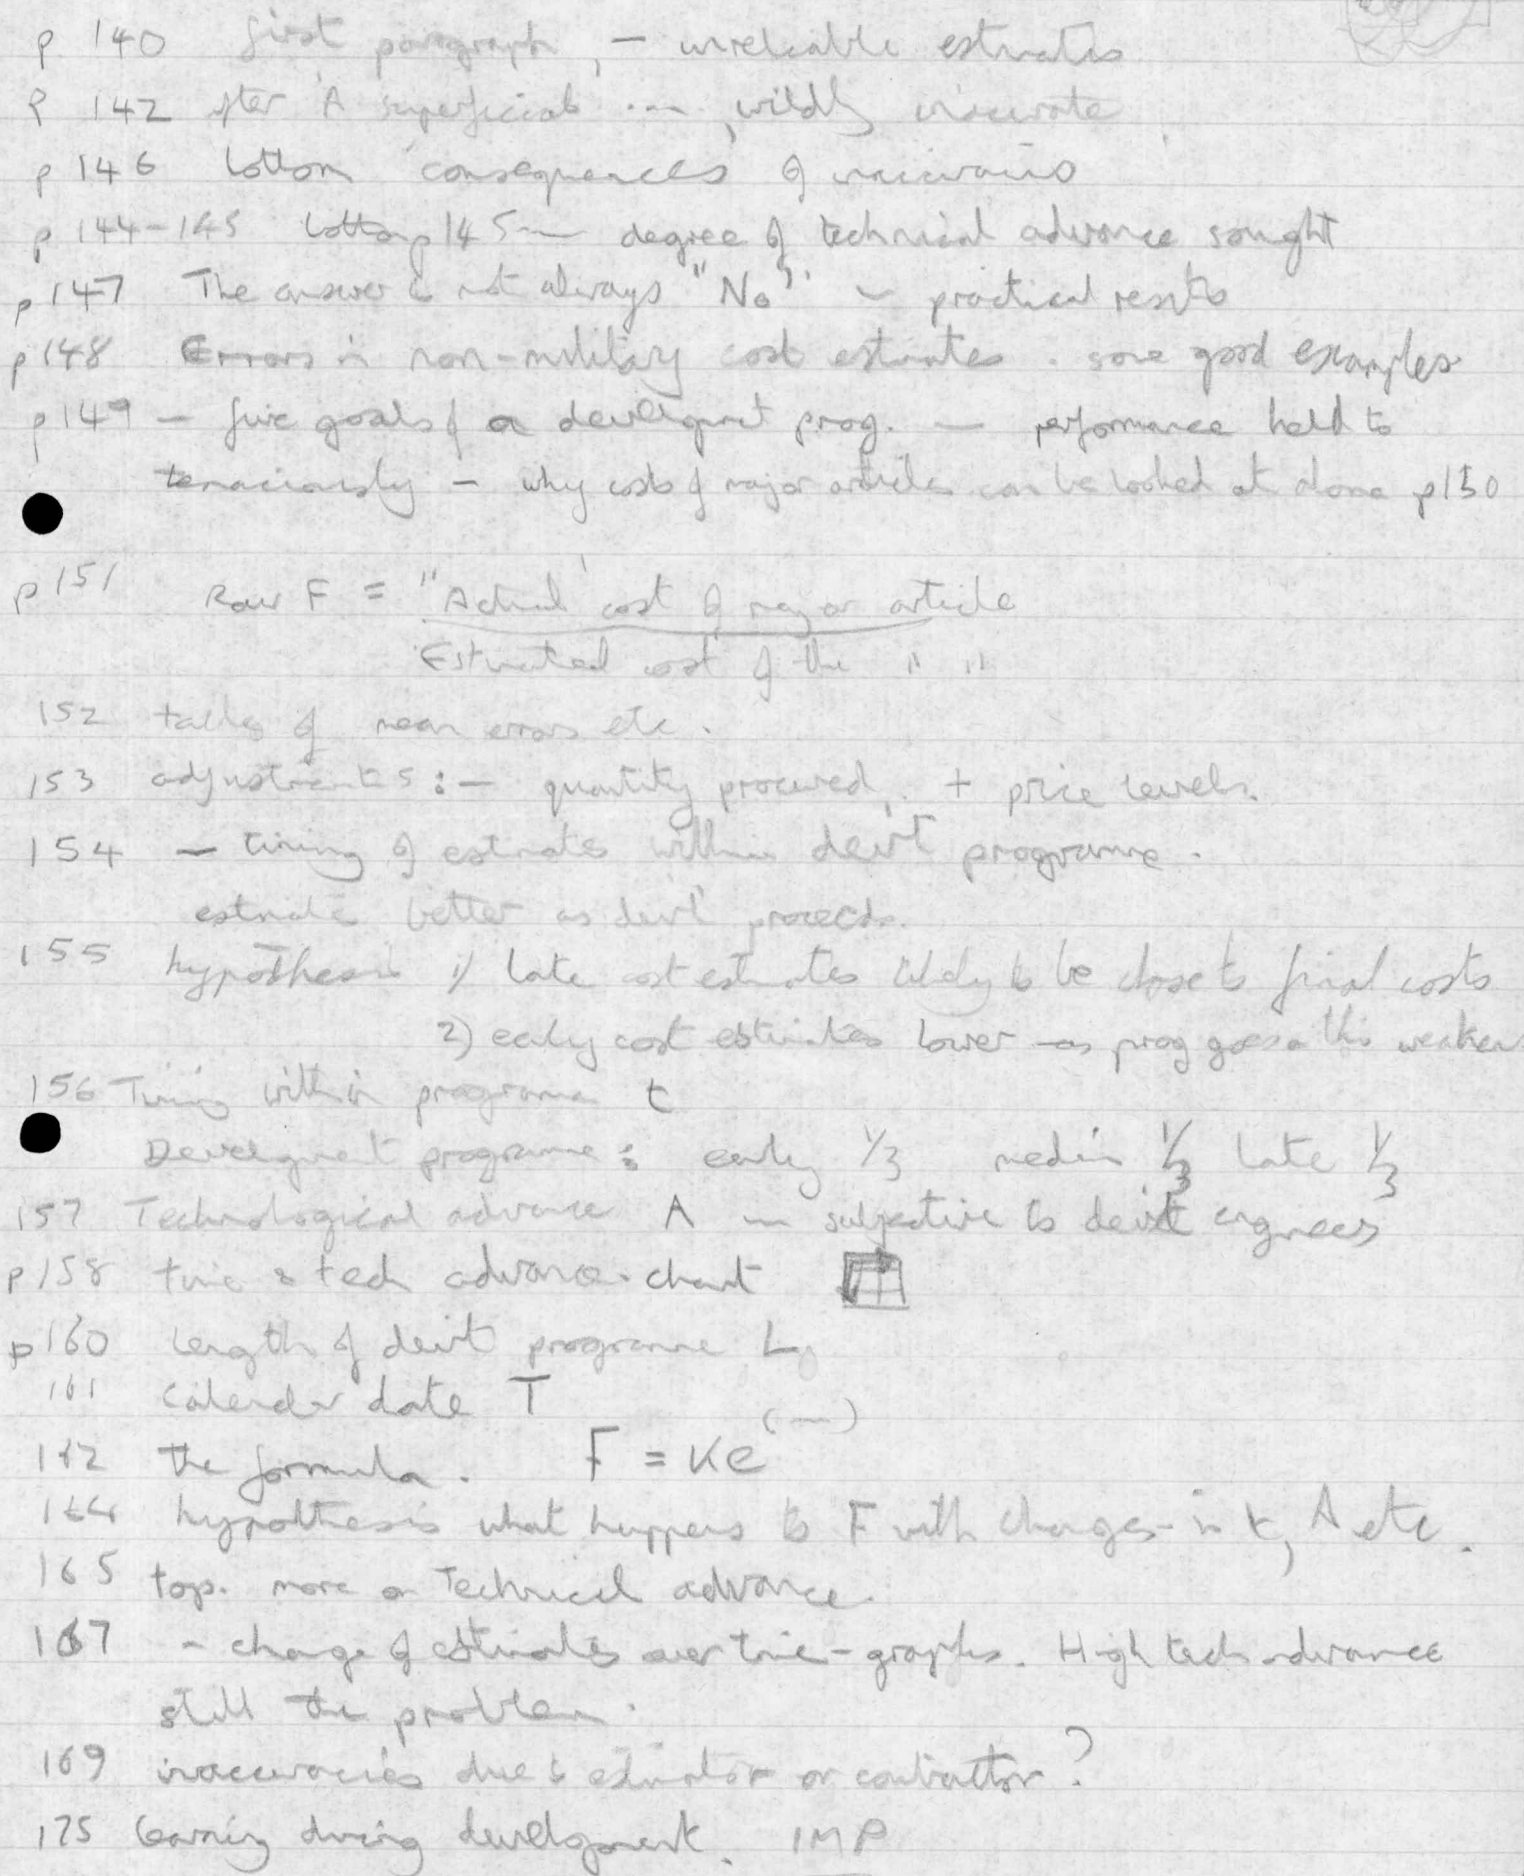 p 140 first paragraph, — unreliable estimates
p 142 after A superficial ... , wildly inaccurate
p 146 bottom 'consequences' of inaccuracies
p 144-145 bottom p 145 — degree of technical advance sought
p 147 The answer is not always "No" — practical results
p 148 Errors in non-military cost estimates . some good examples
p 149 — five goals of a development prog. — performance held to
tenaciously — why costs of major articles can be looked at alone p 150
p 151 Raw F = "Actual" cost of major article
Estimated cost of the " "
152 talks of mean errors etc.
153 adjustments :— quantity procured, + price levels.
154 — timing of estimates within dev't programme.
estimate better as dev't proceeds.
155 hypothesis 1) late cost estimates likely to be close to final costs
2) early cost estimates lower — as prog goes on this weakens
156 Timing within programme t
Development programme : early 1/3 medium 1/3 late 1/3
157 Technological advance A — subjective to dev't engineers
p 158 time & tech advance chart
p 160 length of dev't programme L
161 calendar date T
162 the formula . F = Ke(—)
164 hypothesis what happens to F with changes in t, A etc.
165 top. more on technical advance.
167 - change of estimates over time - graphs. High tech advance
still the problem.
169 inaccuracies due to estimator or contractor?
175 learning during development. IMP